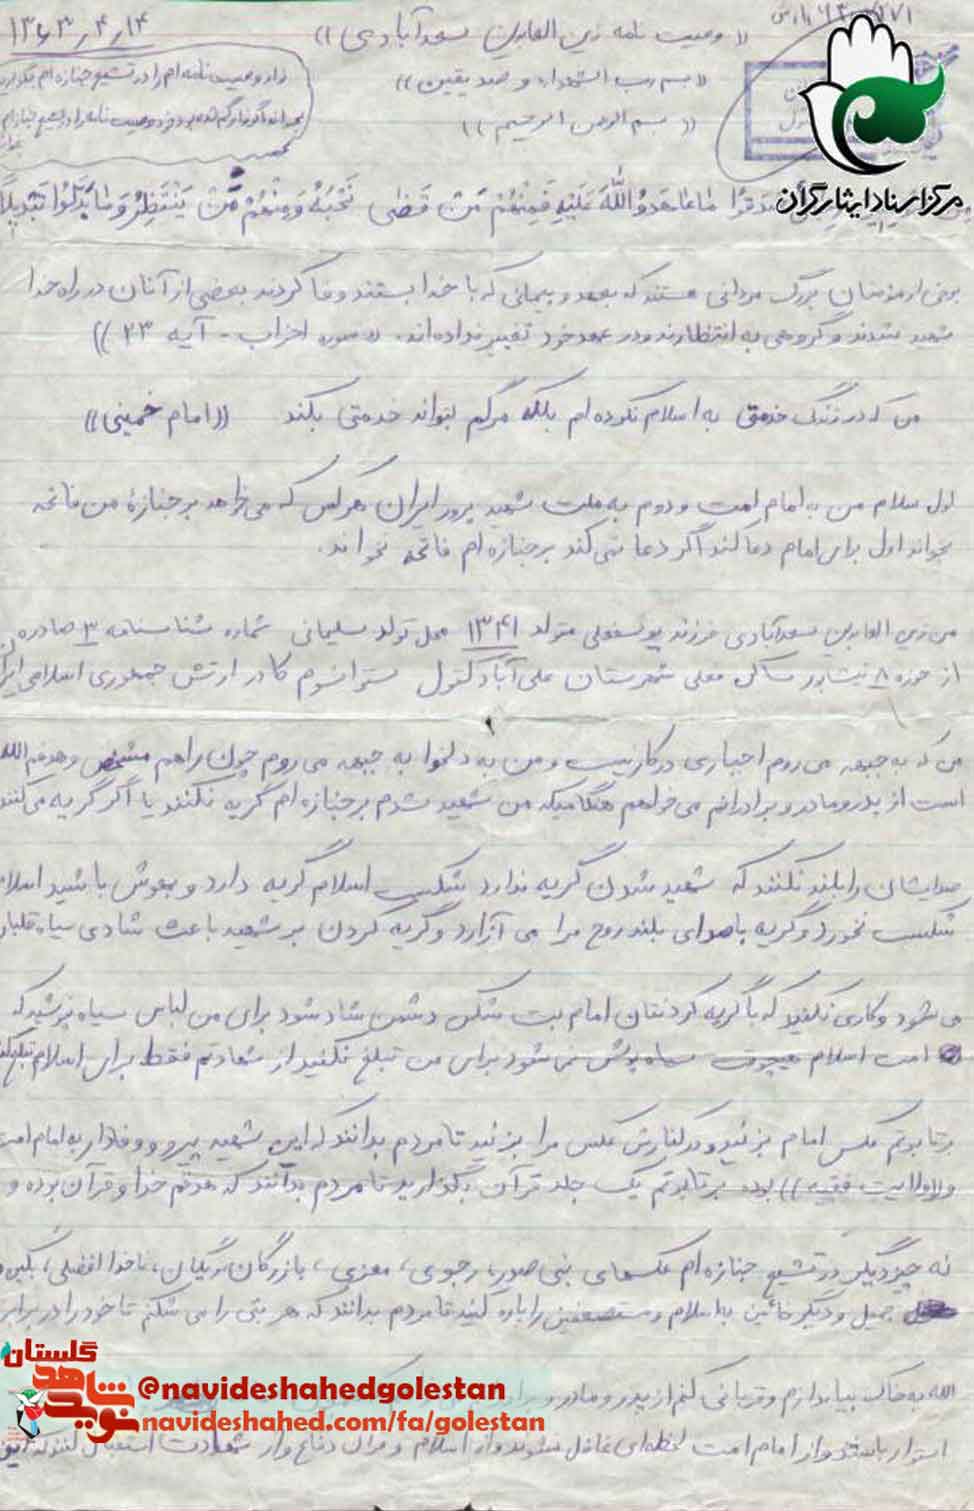 ۱۳۶۳٫۴٫۱۴
(( وصیت نامه زین العابدین سعدآبادی ))
((بسم رب الشهداء و صدیقین))
((بسم الله الرحمن الرحیم))
مرکز اسناد ایثارگران
صدقوا ما عاهدوا الله علیه فمنهم من قضی نحبه و منهم من ینتظر و ما بدلوا تبدیلا
برخی از مؤمنان بزرگ مردانی هستند که به عهد و پیمانی که با خدا بستند وفا کردند بعضی از آنان در راه خدا
شهید شدند و گروهی به انتظارند و در عهد خود تغییر نداده‌اند. ((سوره احزاب - آیه ۲۳))
من که در زندگی خدمتی به اسلام نکرده ام بلکه مرگم بتواند خدمتی بکند ((امام خمینی))
اول سلام من به امام امت و دوم به ملت شهید پرور ایران هرکس که می‌خواهد بر جنازهٔ من فاتحه
بخواند اول برای امام دعا کند اگر دعا نمی کند بر جنازه ام فاتحه نخواند.
من زین العابدین سعدآبادی فرزند یوسفعلی متولد ۱۳۴۱ محل تولد سلیمانی شماره شناسنامه ۳ صادره
از حوزه ۸ نیشابور ساکن فعلی شهرستان علی آباد کتول ستوانسوم کادر ارتش جمهوری اسلامی ایران
من که به جبهه می روم اجباری در کار نیست و من به دلخواه به جبهه می روم چون راهم مشخص و هدفم الله
است از پدر و مادر و برادرانم می خواهم هنگامیکه من شهید شدم بر جنازه ام گریه نکنند یا اگر گریه می‌کنند
صدایشان را بلند نکنند که شهید شدن گریه ندارد شکست اسلام گریه دارد و بهوش باشید اسلام
شکست نخورد و گریه با صدای بلند روح مرا می آزارد و گریه کردن بر شهید باعث شادی سیاه قلبان
می شود و کاری نکنید که با گریه کردنتان امام بت شکن دشمن شاد شود برای من لباس سیاه نپوشید که
امت اسلام هیچوقت سیاه پوش نمی شود برای من تبلیغ نکنید از شهادتم فقط برای اسلام تبلیغ کنید
بر تابوتم عکس امام بزنید و در کنارش عکس مرا بزنید تا مردم بدانند که این شهید پیرو و وفادار به امام امت
و ولایت فقیه)) بوده بر تابوتم یک جلد قرآن بگذارید تا مردم بدانند که هدفم خدا و قرآن بوده و
نه چیز دیگر در تشیع جنازه ام عکسهای بنی صدر، رجوی، معزی، بازرگان
جمیل و دیگر خائنین به اسلام و مستضعفین را پاره کنید تا مردم بدانند که هر بتی را می شکنم تا خود را در برابر
الله به خاک بیاندازم و قربانی کنم از پدر و مادر و
استوار باشند و از امام امت لحظه‌ای غافل نشوند و از اسلام و قرآن دفاع و از شهادت استقبال کنند
گلستان
نوید شاهد
@navideshahedgolestan
navideshahed.com/fa/golestan